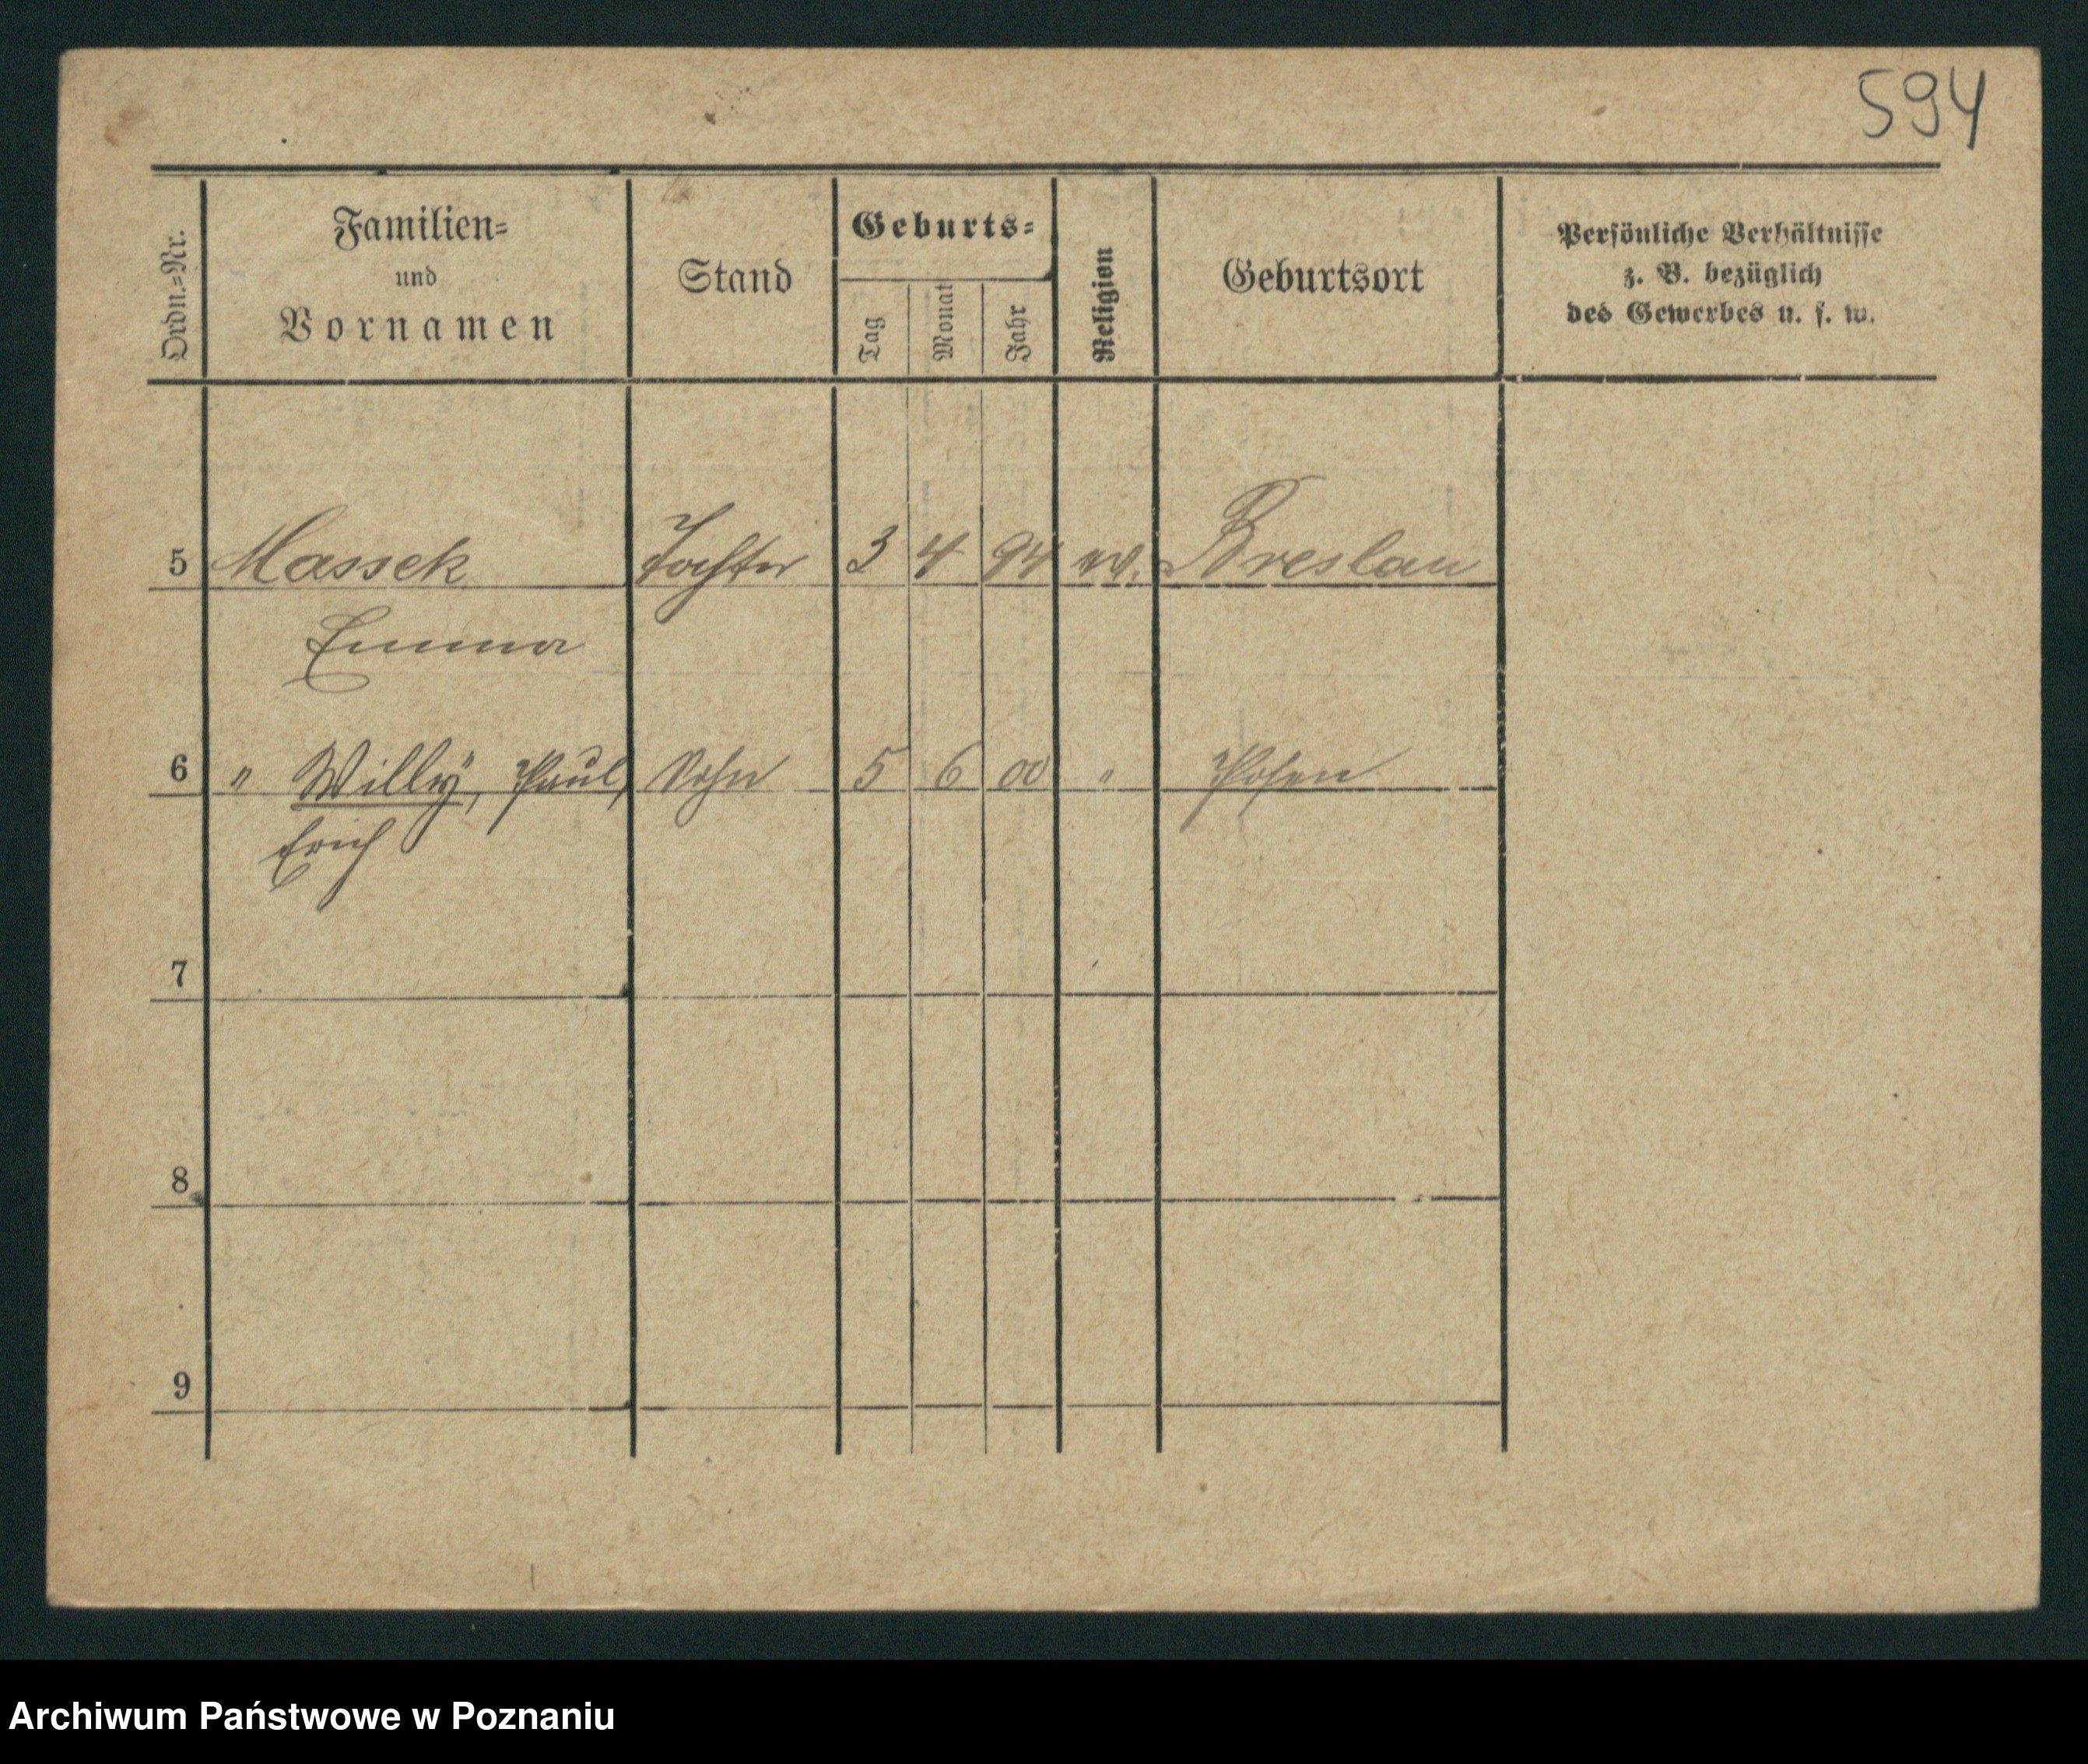 594
Ordn.=Nr.
Familien=
und
Vornamen
Stand
Geburts=
Tag
Monat
Jahr
Religion
Geburtsort
Persönliche Verhältnisse
z. B. bezüglich
des Gewerbes u. s. w.
5 Massek Tochter 3 4 94 ev. Breslau
Emma
6 " Willy, Paul, Sohn 5 6 00 " Posen
Erich
7
8
9
Archiwum Państwowe w Poznaniu